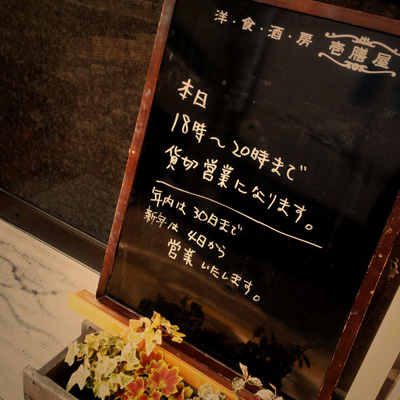 洋・食・酒・房 壱膳屋
本日
18時〜20時まで
貸切営業になります。
年内は30日まで
新年は4日から
営業いたします。